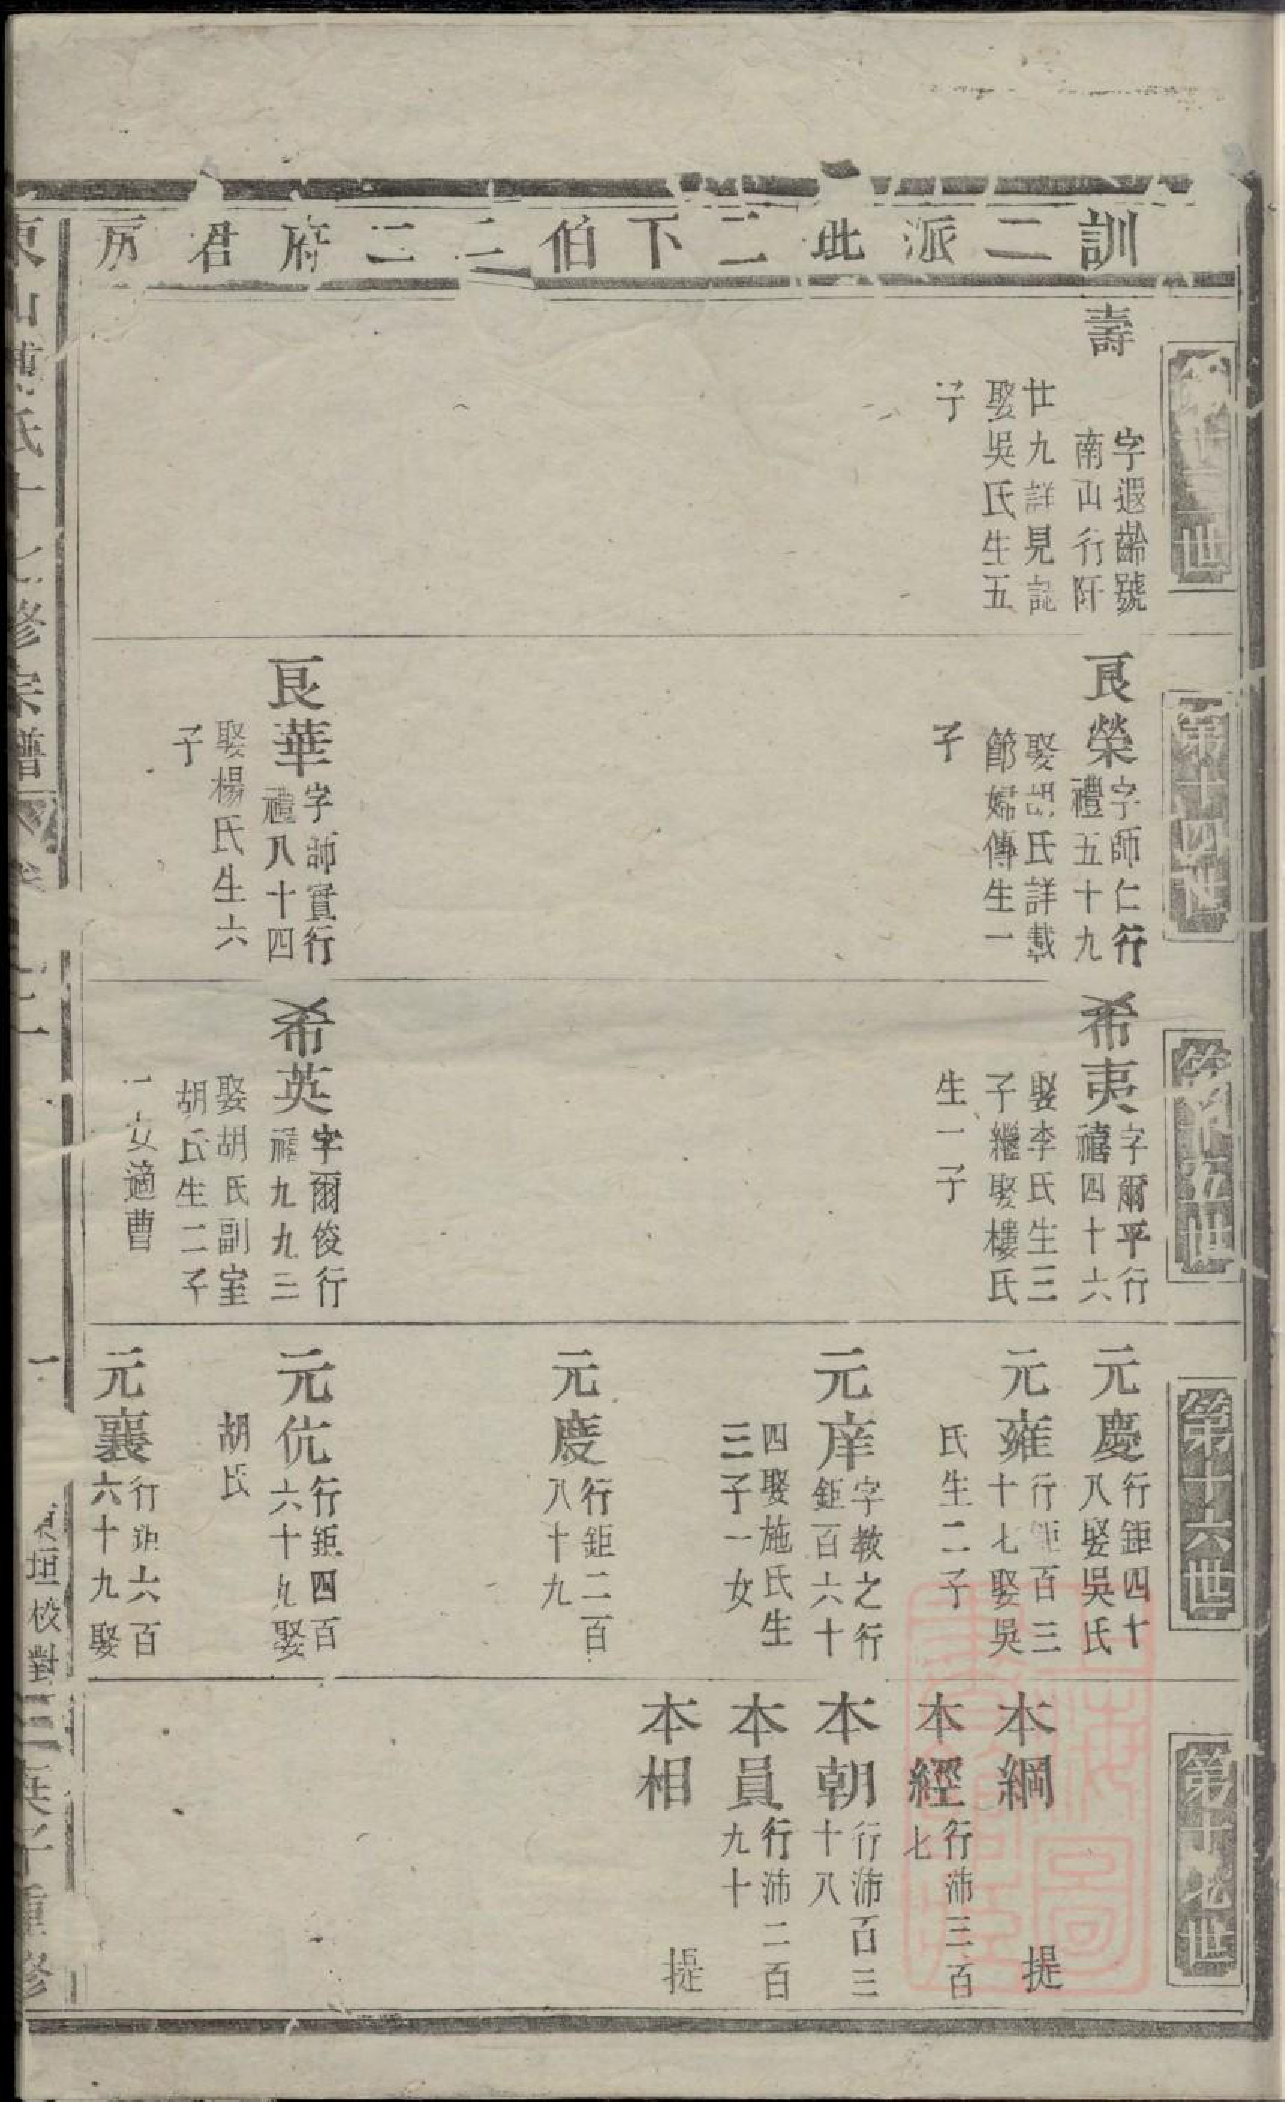 訓二派此二下伯二二府君房
第十三世
壽
字遐齡號
南山行阡
廿九詳見誌
娶吳氏生五
子
第十四世
良榮
字師仁行
禮五十九
娶胡氏詳載
節婦傳生一
子
良華
字師實行
禮八十四
娶楊氏生六
子
第十五世
希夷
字爾平行
禧四十六
娶李氏生三
子繼娶樓氏
生一子
希英
字爾俊行
禧九九三
娶胡氏副室
胡氏生二子
一女適曹
第十六世
元慶
行鉅四十
八娶吳氏
元雍
行鉅百三
十七娶吳
氏生二子
元庠
字教之行
鉅百六十
四娶施氏生
三子一女
元度
行鉅二百
八十九
元伉
行鉅四百
六十九娶
胡氏
元襄
行鉅六百
六十九娶
第十七世
本綱
提
本經
行沛三百
七
本朝
行沛百三
十八
本員
行沛二百
九十
本相
提
東山傅氏十七修宗譜
一
垣校對
重修